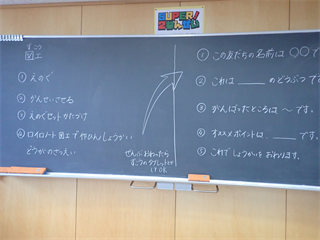 SUPER!
ずこう
図工
① えのぐ
② かんせいさせる
③ えのぐセットかたづけ
④ ロイロノート 図工で作ひんしょうかい
どうがのさつえい
ぜんぶおわったら
すこうのタブレット
OK
① この友だちの名前は 〇〇で
② これは ____ のどうぶつで
③ がんばったところは 〜 です。
④ オススメポイントは ____ です
⑤ これでしょうかいをおわります。